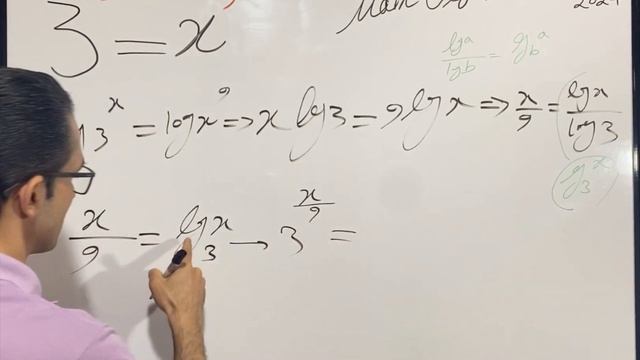 Math
3 = x
lga/lgb = lg_b^a
3^x = logx^9 ⇒ x lg3 = 9 lgx ⇒ x/9 = lgx/log3
lg_3^x
x/9 = lg_3 x → 3^(x/9) =